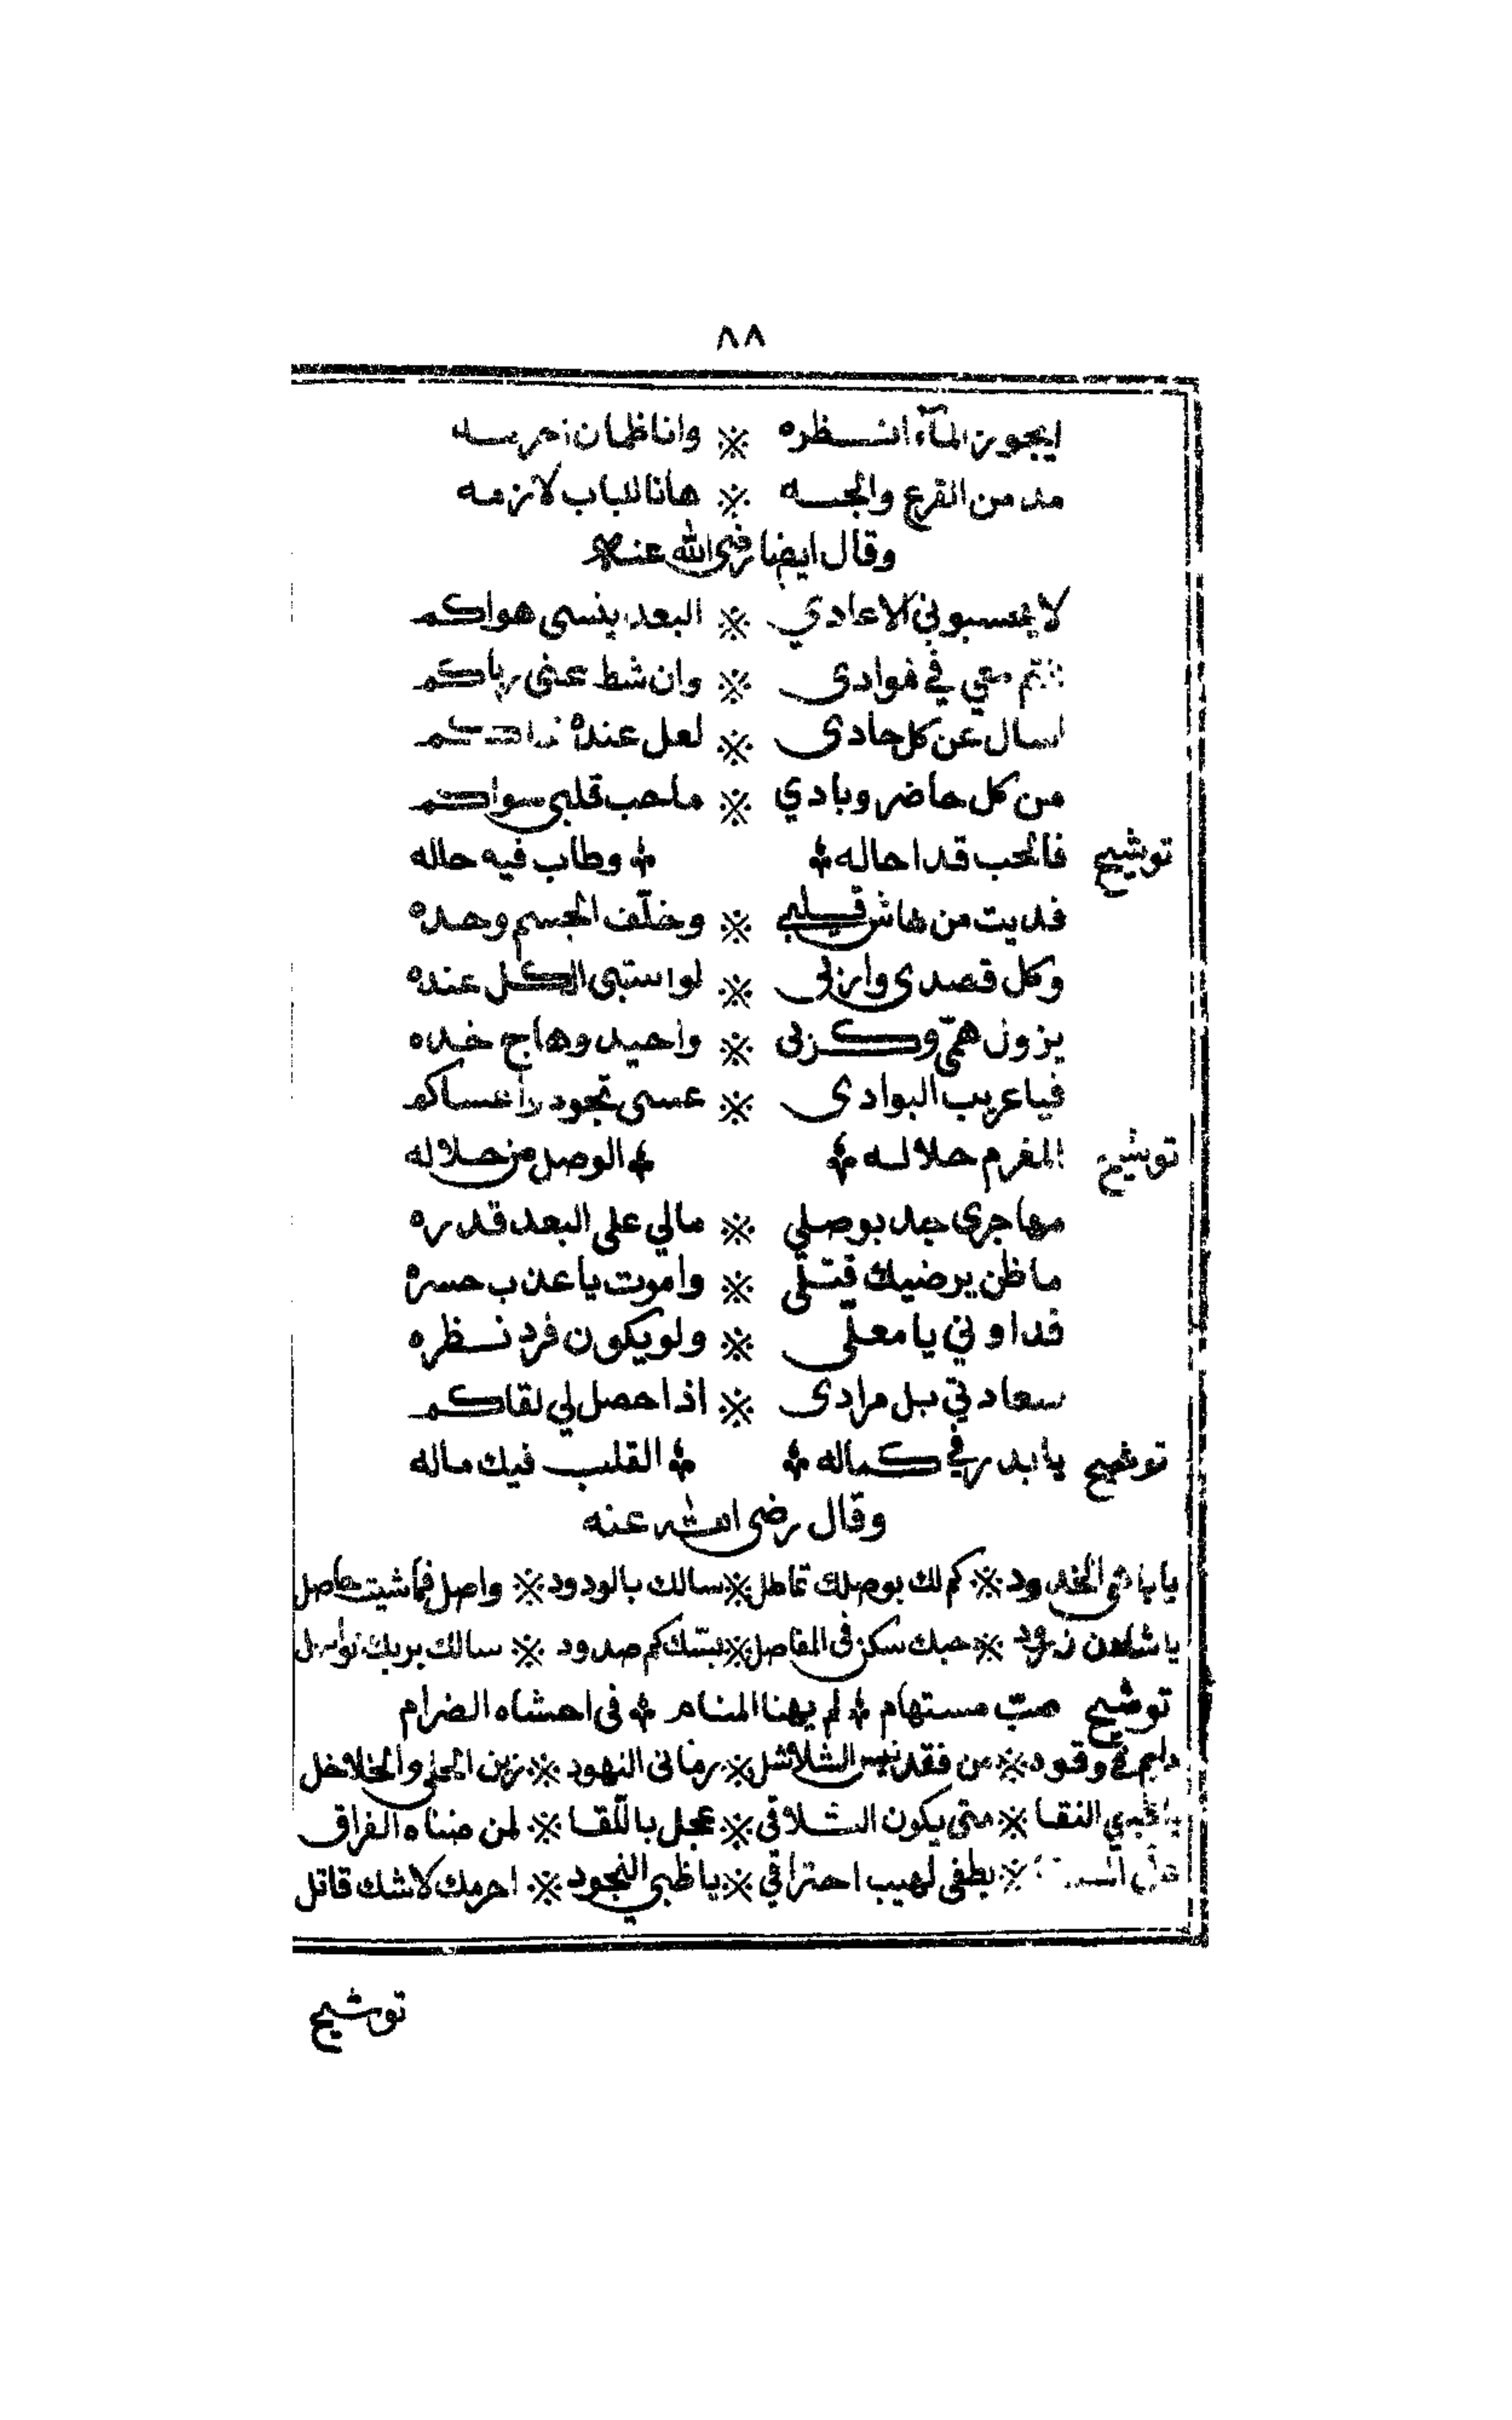 ٨٨
ايجوز المآء انظره ※ وانا ظمان احرمه
مدمن القرع والجسه ※ هانا للباب لازمه
وقال ايضا رضى الله عنه
لا يحسبوني الاعادي ※ البعد ينسى هواكم
انتم معي في فوادى ※ وان شط عنى رباكم
اسال عن كل حادى ※ لعل عنده
من كل حاضر وبادي ※ ما حب قلبي سواكم
توشيح فالحب قد احاله ※ وطاب فيه حاله
فديت من هاش قلبي ※ وخلّف الجسم وحده
وكل قصدى واربى ※ لو استبى الكل عنده
يزول همّى وكربى ※ واحيد وهاج خده
فيا عريب البوادى ※ عسى تجود راعساكم
توشيح المغرم حلاله ※ الوصل من حلاله
مهاجرى جد بوصلي ※ مالي على البعد قدره
ما ظن يرضيك قتلي ※ واموت يا عذب حسرة
فداوني يا معلّى ※ ولو يكون فرد نظره
سعادتي بل مرادى ※ اذا حصل لي لقاكم
توشيح يا بدر في كماله ※ القلب فيك ماله
وقال رضى الله عنه
يا باهى الخدود ※ كم لك بوصلك تماطل ※ سالك بالودود ※ واصل فما شيت حاصل
يا شادن زرود ※ حبك سكن فى المفاصل ※ بسّك كم صدود ※ سالك بربك تواصل
توشيح صبّ مستهام ※ لم يهنا المنام ※ فى احشاه الضرام
دايم في وقود ※ من فقد نيس الشلاشل ※ رمانى النهود ※ زين الحلى والخلاخل
يا ظبي النقا ※ متى يكون التلاقي ※ عجل باللّقا ※ لمن ضناه الفراق
※ يطفى لهيب احتراقي ※ يا ظبي النجود ※ احرمك لاشك قاتل
توشيح